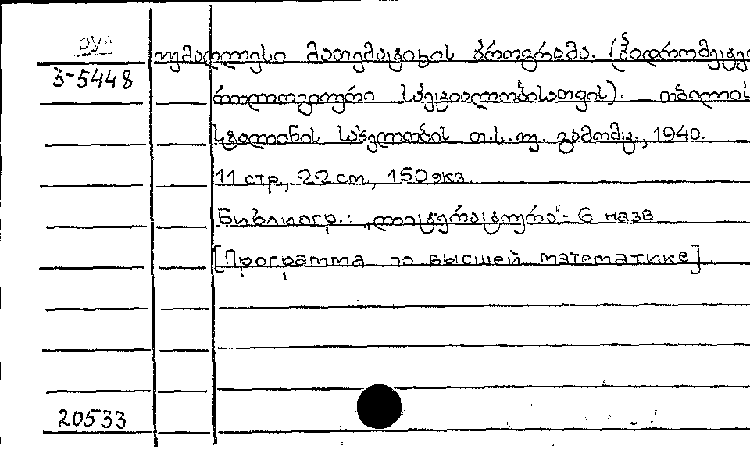 უმაღლესი მათემატიკის პროგრამა. (ჰიდრომეტეო
3-5448
როლოგიური სპეციალობისათვის). თბილის
სტალინის სახელობის თ.ს.უ. გამომც., 1940.
11 стр., 22 cm, 150 экз.
Библиогр.: „ლიტერატურა“- 6 назв
[Программа по высшей математике]
20533